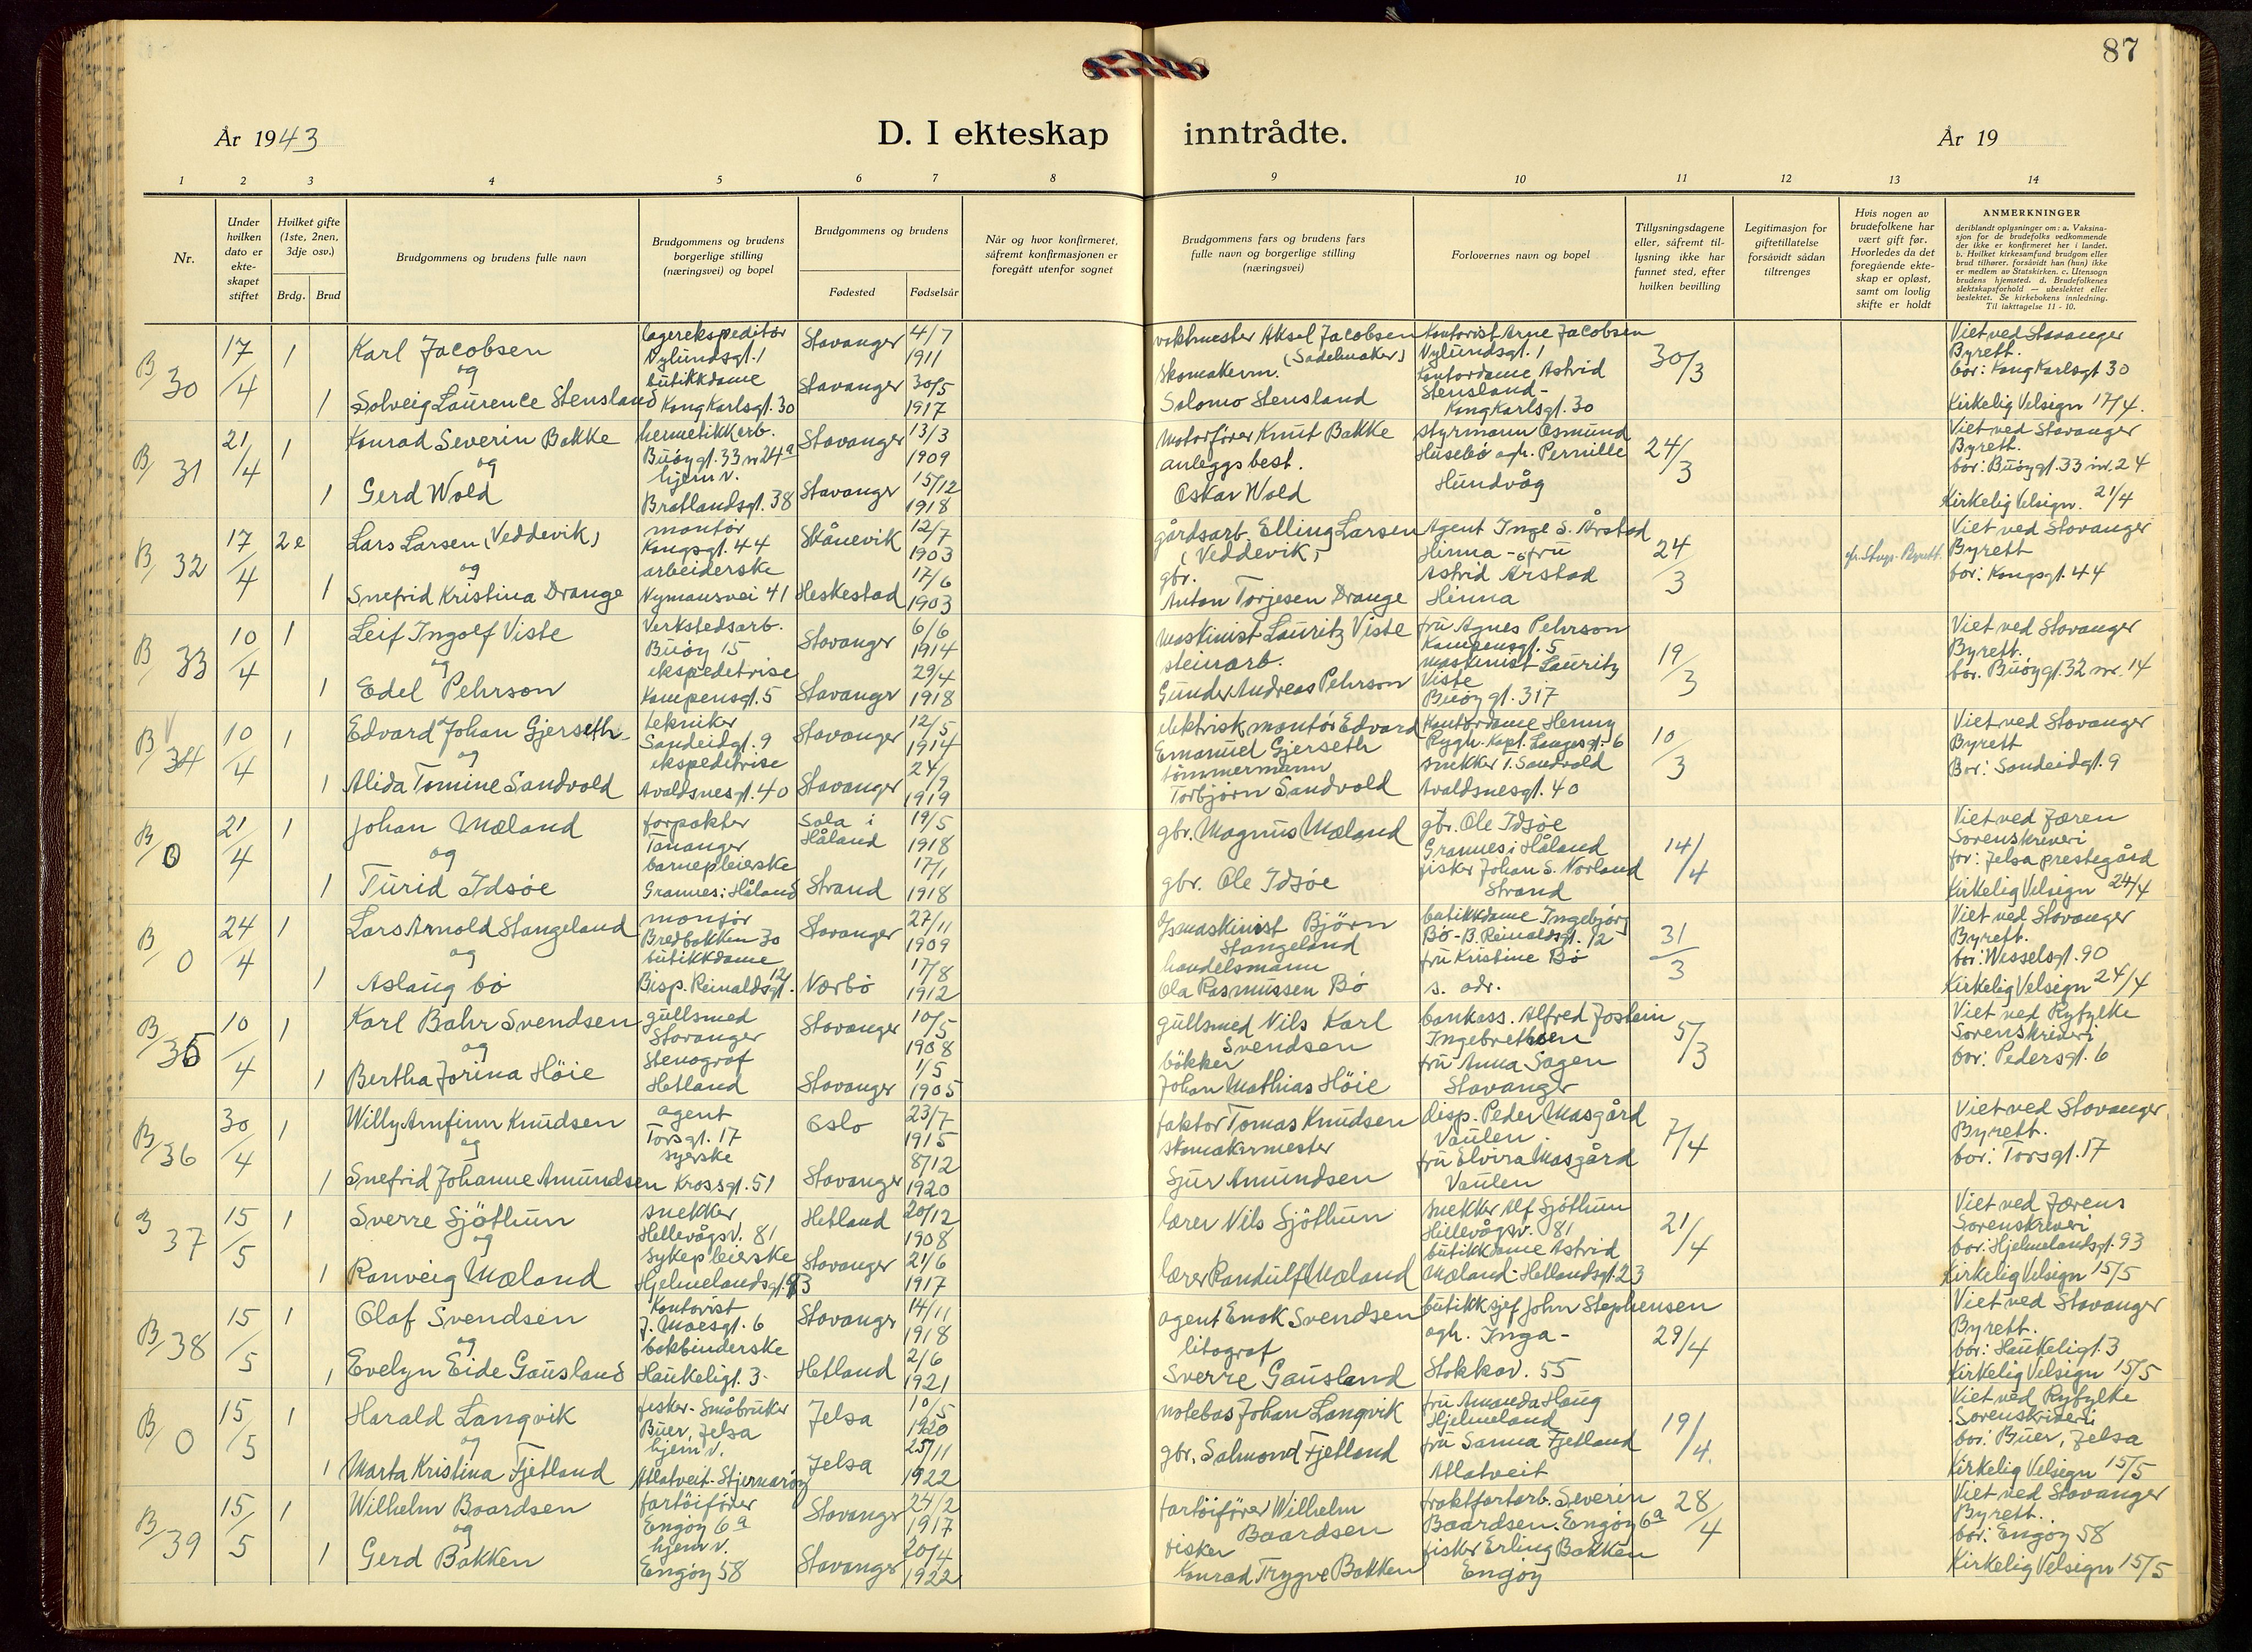 87
År 1943
D. I ekteskap inntrådte.
År 19
1 2 3 4 5 6 7 8 9 10 11 12 13 14
Nr.
Under hvilken dato er ekteskapet stiftet
Hvilket gifte (1ste, 2nen, 3dje osv.)
Brdg. Brud
Brudgommens og brudens fulle navn
Brudgommens og brudens borgerlige stilling (næringsvei) og bopel
Brudgommens og brudens
Fødested
Fødselsår
Når og hvor konfirmeret, såfremt konfirmasjonen er foregått utenfor sognet
Brudgommens fars og brudens fars fulle navn og borgerlige stilling (næringsvei)
Forlovernes navn og bopel
Tillysningsdagene eller, såfremt tillysning ikke har funnet sted, efter hvilken bevilling
Legitimasjon for giftetillatelse forsåvidt sådan tiltrenges
Hvis nogen av brudefolkene har vært gift før. Hvorledes da det foregående ekteskap er opløst, samt om lovlig skifte er holdt
ANMERKNINGER
deriblandt oplysninger om: a. Vaksinasjon for de brudefolks vedkommende der ikke er konfirmeret her i landet. b. Hvilket kirkesamfund brudgom eller brud tilhører, forsåvidt han (hun) ikke er medlem av Statskirken. c. Utensogn brudens hjemsted. d. Brudefolkenes slektskapsforhold — ubeslektet eller beslektet. Se kirkebokens innledning. Til iakttagelse 11 - 10.
B/30 17/4 1 Karl Jacobsen lagerekspeditør Nylundsgt. 1 Stavanger 4/7 1911 vaktmester Aksel Jacobsen (Sadelmaker) Kontorist Arne Jacobsen Nylundsgt. 1 30/3 Viet ved Stavanger Byrett.
og
1 Solveig Laurence Stensland butikkdame Kong Karlsgt. 30 Stavanger 30/5 1917 Skomakerm. Salomo Stensland Kontordame Astrid Stensland - Kong Karlsgt. 30 bor: Kong Karlsgt 30 Kirkelig Velsign 17/4.
B/31 21/4 1 Konrad Severin Bakke hermetikkarb. Buøygt. 33 nr 24a Stavanger 13/3 1909 Motorfører Knut Bakke styrmann Osmund Husebö ogh. Pernille Hundvåg 24/3 Viet ved Stavanger Byrett.
og
1 Gerd Wold hjemv. Bratlandsgt. 38 Stavanger 15/12 1918 anleggsbest. Oskar Wold bor: Buøygt. 33 nr. 24 Kirkelig Velsign. 21/4
B/32 17/4 2e Lars Larsen (Veddevik) montør Kongsgt. 44 Skånevik 12/7 1903 gårdsarb. Elling Larsen (Veddevik) Agent Inge S. Årstad Hinna - 24/3 Viet ved Stavanger Byrett
og
1 Snefrid Kristina Drange arbeiderske Nymansvei 41 Heskestad 17/6 1903 gbr. Anton Torjesen Drange fru Astrid Årstad Hinna bor: Kongsgt. 44
B/33 10/4 1 Leif Ingolf Viste Verkstedsarb. Buøy 15 Stavanger 6/6 1914 maskinist Lauritz Viste fru Agnes Pehrson Kampensgt. 5 19/3 Viet ved Stavanger Byrett.
og
1 Edel Pehrson ekspeditrise Kampensgt. 5 Stavanger 29/4 1918 steinarb. Gunder Andreas Pehrson maskinist Lauritz Viste Buøygt. 317 bor. Buøygt. 32 nr. 14
B/34 10/4 1 Edvard Johan Gjerseth tekniker Sandeidgt. 9 Stavanger 12/5 1914 elektrisk montör Edvard Emanuel Gjerseth Kontordame Henny Rygh. Kapt. Langesgt. 6 10/3 Viet ved Stavanger Byrett
og
1 Alida Tomine Sandvold ekspeditrise Avaldsnesgt. 40 Stavanger 24/9 1919 tömmermann Torbjørn Sandvold snekker T. Sandvold Avaldsnesgt. 40 Bor: Sandeidgt. 9
B/0 21/4 1 Johan Mæland forpakter Tananger Sola i Håland 19/5 1918 gbr. Magnus Mæland gbr. Ole Idsøe Grannes i Håland 14/4 Viet ved Jæren Sorenskriveri
og
1 Turid Idsøe barnepleierske Grannes i Håland Strand 17/1 1918 gbr. Ole Idsøe fisker Johan S. Norland Strand for: Jelsa prestegård Kirkelig Velsign 24/4
B/0 24/4 1 Lars Arnold Stangeland montør Bredbakken 30 Stavanger 27/11 1909 Bjørn Stangeland butikkdame Ingebjørg Bö - B. Reinaldsgt. 12 31/3 Viet ved Stavanger Byrett.
og
1 Aslaug bö butikkdame Bisp. Reinaldsgt. 12 Nærbö 17/8 1912 handelsmann Ola Rasmussen Bö fru Kristine Bö s. adr. bor: Wesselsgt. 90 Kirkelig Velsign 24/4
B/35 10/4 1 Karl Bahr Svendsen gullsmed Stavanger Stavanger 10/5 1908 gullsmed Nils Karl Svendsen bankass. Alfred Jostein Ingebrethsen 5/3 Viet ved Ryfylke Sorenskriveri
og
1 Bertha Jorina Höie Stenograf Hetland Stavanger 1/5 1905 bökker Johan Mathias Höie fru Anna Sagen Stavanger bor: Pedersgt. 6
B/36 30/4 1 Willy Arnfinn Knudsen agent Torsgt. 17 Oslo 23/7 1915 faktor Tomas Knudsen disp. Peder Masgård Vaulen 7/4 Viet ved Stavanger Byrett.
og
1 Snefrid Johanne Amundsen syerske Krossgt. 51 Stavanger 8/12 1920 skomakermester Sjur Amundsen fru Elvira Masgård Vaulen bor: Torsgt. 17
37 15/5 1 Sverre Sjöthun snekker Hillevågsv. 81 Hetland 20/12 1908 lærer Nils Sjöthun snekker Alf Sjöthun Hillevågsv. 81 21/4 Viet ved Jærens Sorenskriveri
og
1 Ranveig Mæland Sykepleierske Hjelmelandsgt. 93 Stavanger 21/6 1917 lærer Randulf Mæland butikkdame Astrid Mæland - Hetlandsgt. 23 bor: Hjelmelandsgt. 93 Kirkelig Velsign 15/5
B/38 15/5 1 Olaf Svendsen Kontorist J. Moesgt. 6 Stavanger 14/11 1918 agent Enok Svendsen butikksjef John Stephensen 29/4 Viet ved Stavanger Byrett.
og
1 Evelyn Eide Gausland bokbinderske Haukeligt. 3. Hetland 2/6 1921 litograf Sverre Gausland ogh. Inga - Stokkav. 55 bor: Haukeligt. 3 Kirkelig Velsign 15/5
B/0 15/5 1 Harald Langvik fisker - Småbruker Buer, Jelsa Jelsa 10/5 1920 notebas Johan Langvik fru Amanda Haug Hjelmeland 19/4. Viet ved Ryfylke Sorenskriveri
og
1 Marta Kristina Fjetland hjemv. Atlatveit - Stjernarøy Jelsa 25/11 1922 gbr. Salmond Fjetland fru Sanna Fjetland Atlatveit bor: Buer, Jelsa Kirkelig Velsign 15/5
B/39 15/5 1 Wilhelm Baardsen fartöifører Engøy 6a Stavanger 24/2 1917 fartöifører Wilhelm Baardsen fraktfartarb. Severin Baardsen. Engøy 6a 28/4 Viet ved Stavanger Byrett.
og
1 Gerd Bakken hjemv. Engøy 58 Stavanger 20/4 1922 fisker Konrad Trygve Bakken fisker Erling Bakken Engøy bor: Engøy 58 Kirkelig Velsign 15/5